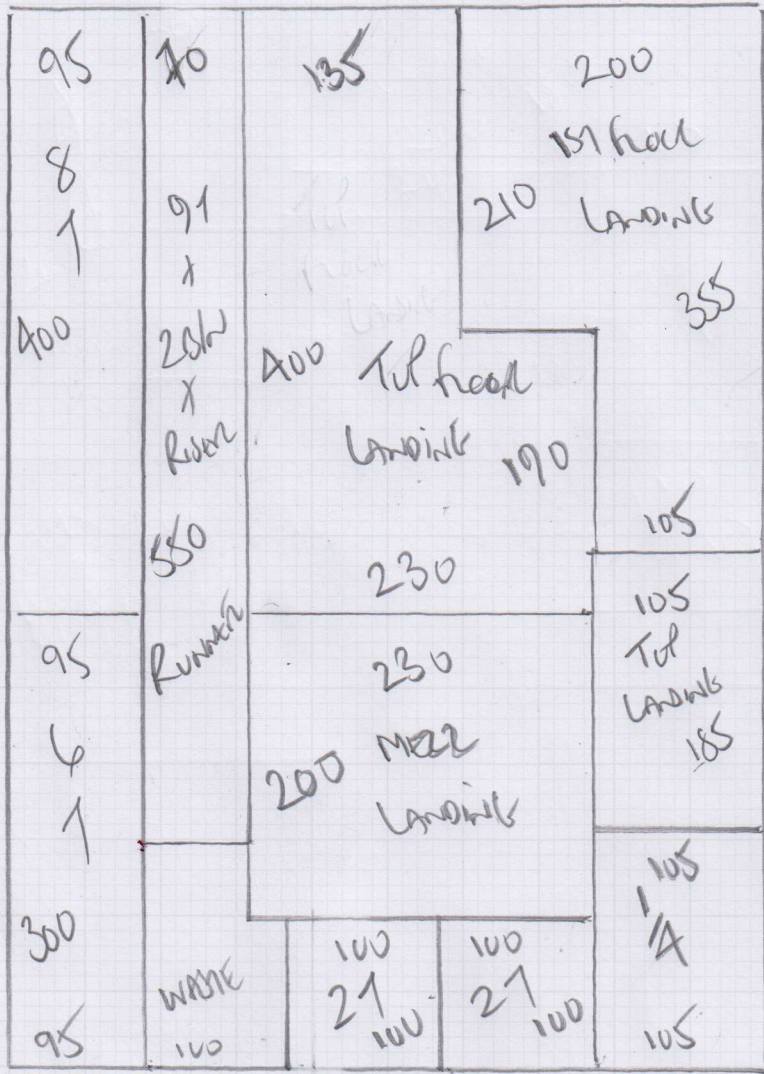 95
8
1
400
95
6
1
300
95
70
91
X
2B/N
X
RISER
550
RUNNER
WASTE
100
135
400
TOP FLOOR
LANDING
190
230
230
200
MEZZ
LANDING
100
21
100
100
21
100
200
1ST FLOOR
210
LANDING
355
105
105
TOP
LANDING
185
105
1/4
105